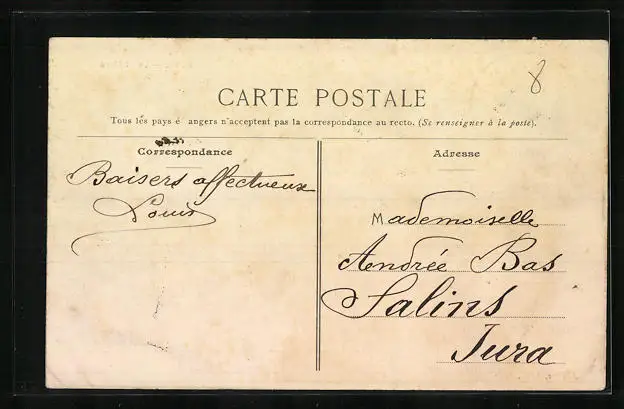 8
CARTE POSTALE
Tous les pays é angers n'acceptent pas la correspondance au recto. (Se renseigner à la poste).
Correspondance
Adresse
Baisers affectueux
Louis
Mademoiselle
Andrée Bas
Salins
Jura